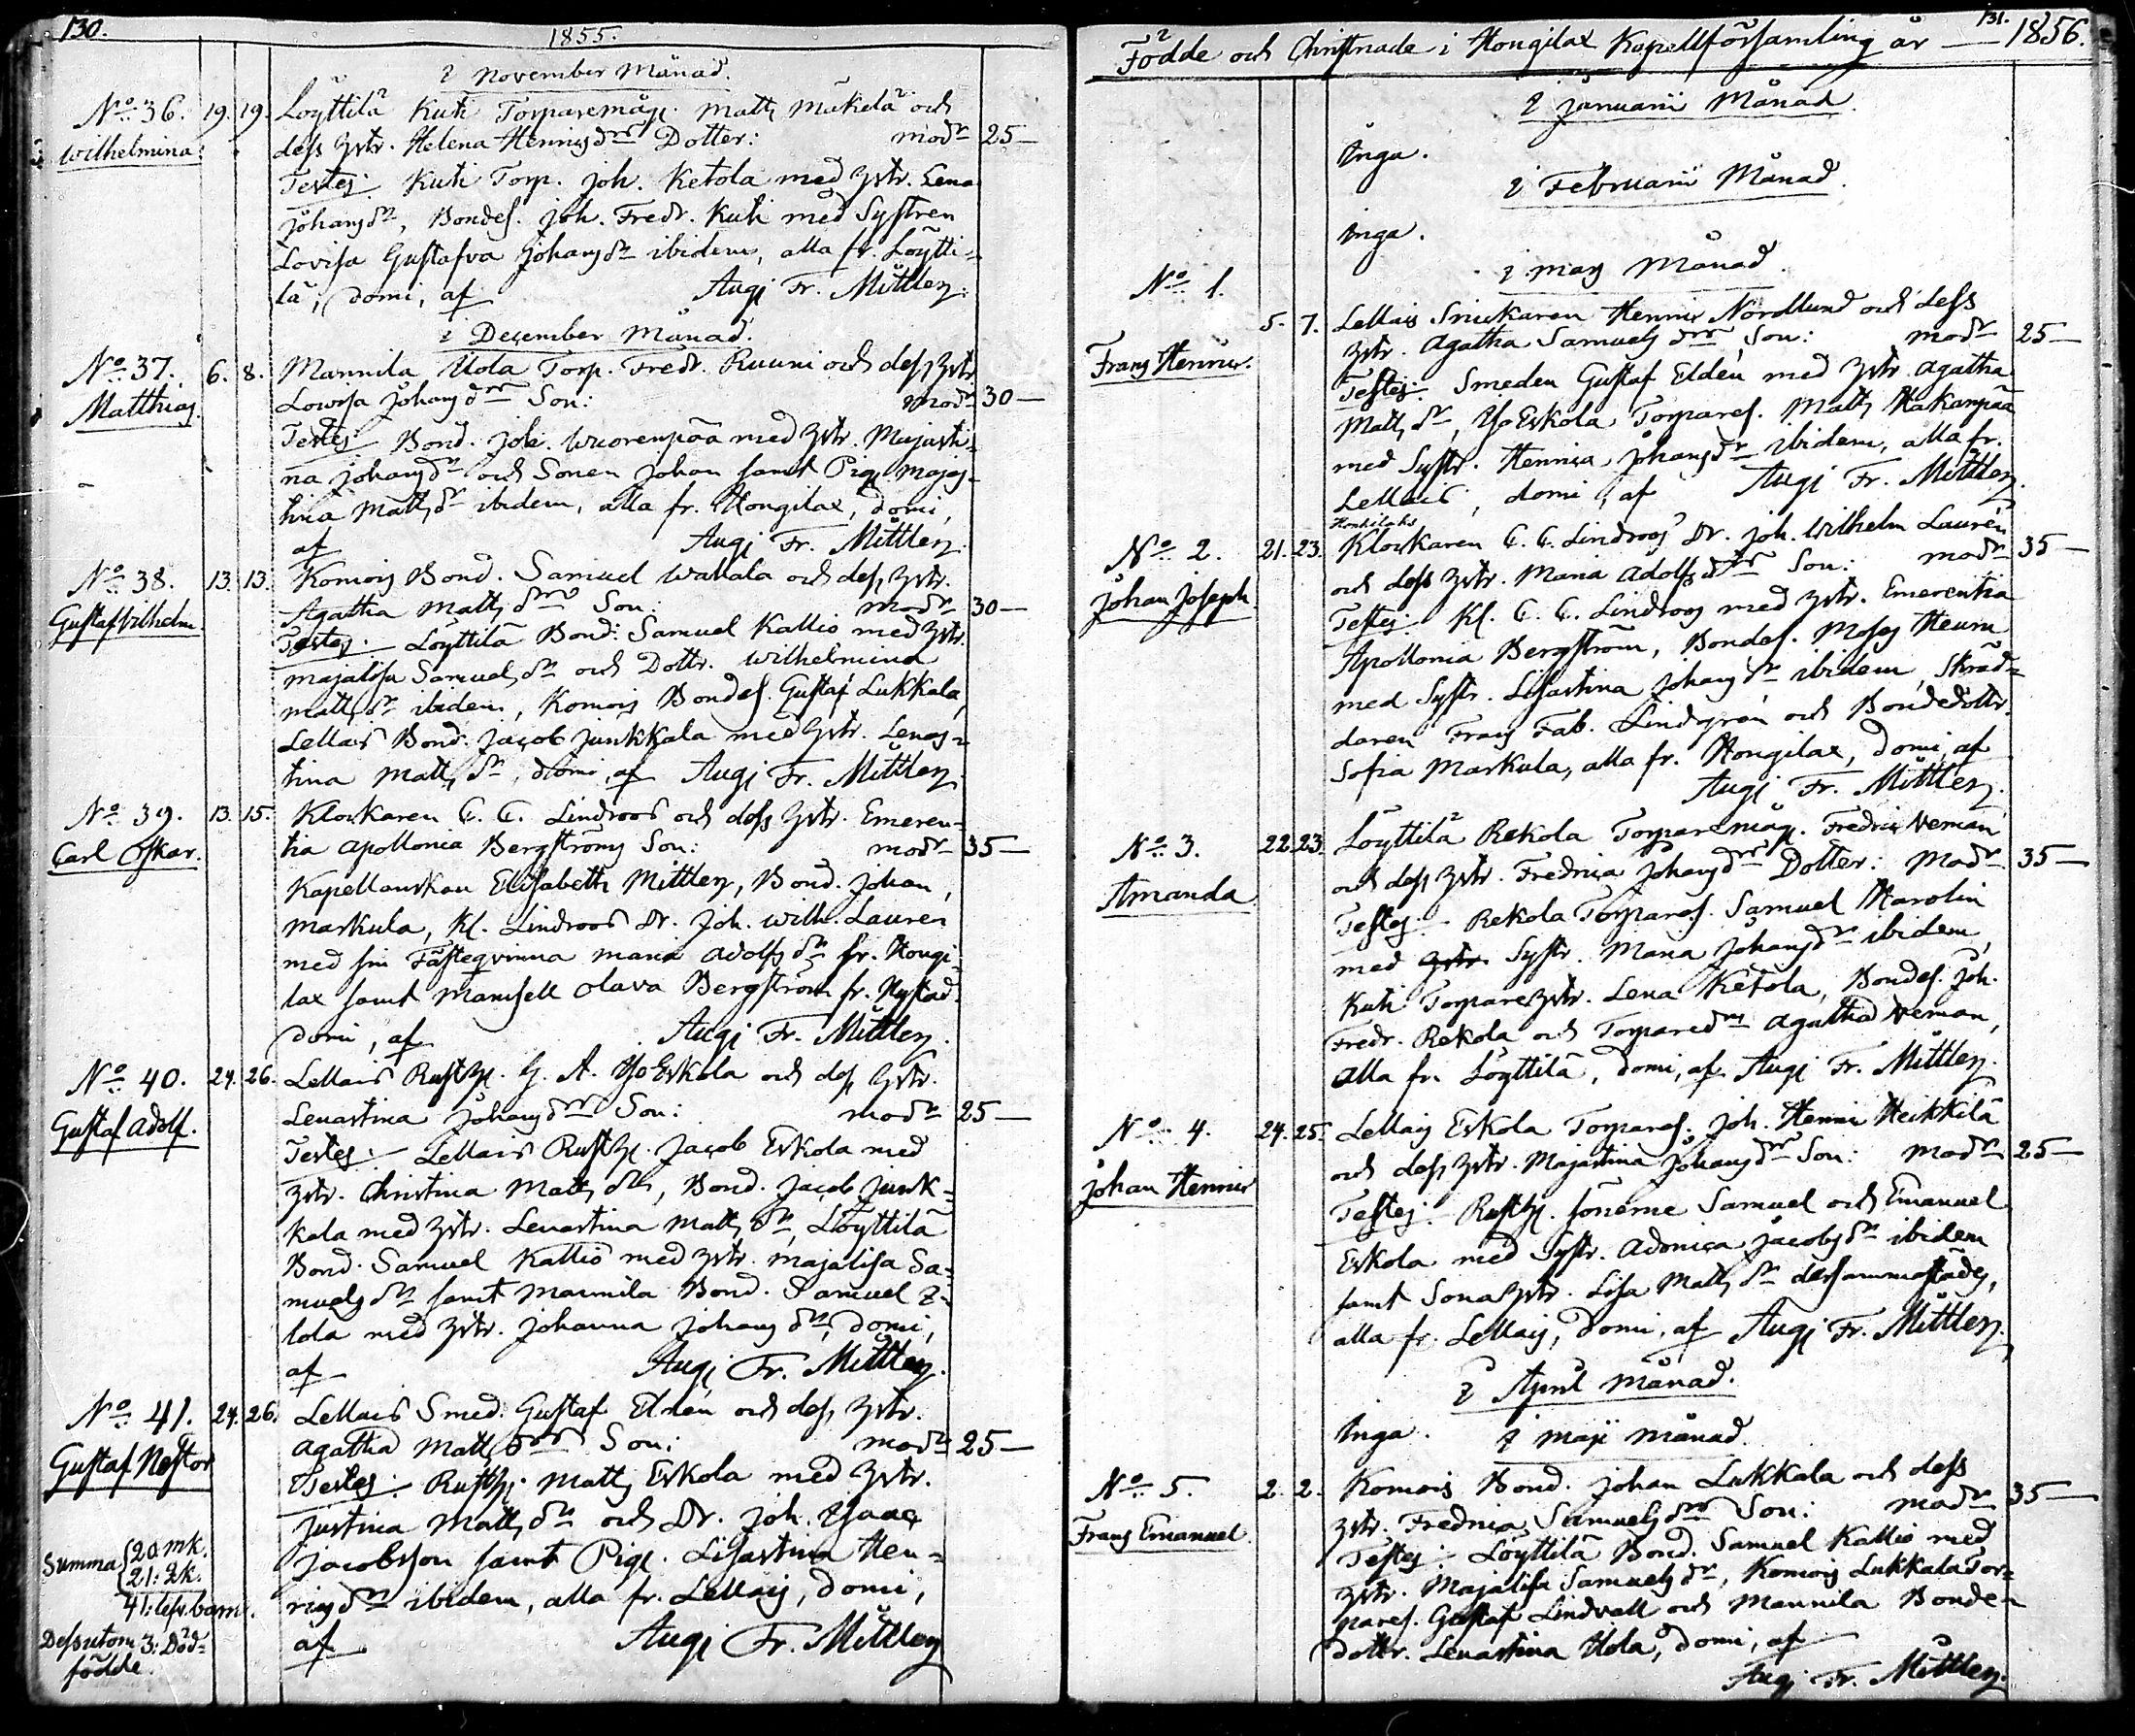 130.
1855.
i November Månad.
No 36. 19. 19. Löyttilä Kuti Torparemåg. Matts Mäkelä och
Wilhelmina. dess hstr. Helena Henrigsdr Dotter: modr 25—
Testes: Kuti Torp. Joh. Ketola med hstr. Lena
Johansdr, Bondes. Joh. Fredr. Kuti med Systren
Lovisa Gustafva Johansdr ibidem, alla fr. Löytti=
lä, domi, af Augi Fr. Mittler.
i December Månad.
No 37. 6. 8. Mannila Uola Torp. Fredr. Ruuni och dess hstr
Matthias. Lowisa Johansdr Son: modr 30—
Testes Bond. Joh. Wuorenpää med hstr. Majasti=
na Johansdr och Sonen Johan samt Pig. Majas=
tina Mattsdr ibidem, alla fr. Hongilax, domi,
af Augi Fr. Mittler.
No 38. 13. 13. Komois Bond. Samuel Wallala och dess hstr.
Gustaf Vilhelm. Agatha Mattsdr Son: modr 30—
Testes: Löyttilä Bond: Samuel Kallio med hstr.
Majalisa Samuelsdr och Dottr. Wilhelmina
Mattsdr ibidem, Komois Bondes. Gustaf Lukkala,
Lellais Bond. Jacob Junkkala med hstr. Lenas=
tina Mattsdr, domi, af Augi Fr. Mittler.
No 39. 13. 15. Klockaren C. C. Lindroos och dess hstr. Emeren=
Carl Oskar. tia Apollonia Bergströms Son: modr 35—
Kapellanskan Elisabeth Mittler, Bond. Johan
Markula, Kl. Lindroos Dr. Joh. Wilh. Lauren
med sin Fästeqvinna Maria Adolfsdr fr. Hongi=
lax samt Mamsell Olava Bergström fr. Nystad.
domi, af Augi Fr. Mittler.
No 40. 24. 26. Lellais Rusth. G. A. Yso Eskola och dess hstr.
Gustaf Adolf. Lenastina Johansdr Son: modr 25—
Testes: Lellais Rusth. Jacob Eskola med
hstr. Christina Mattsdr, Bond. Jacob Junk=
kala med hstr. Lenastina Mattsdr, Löyttilä
Bond. Samuel Kallio med hstr. Majalisa Sa=
muelsdr samt Mannila Bond. Samuel
lola med hstr. Johanna Johansdr, domi,
af Augi Fr. Mittler.
No 41. 24. 26. Lellais Smed. Gustaf Elden och dess hstr.
Gustaf Nestor Agatha Mattsdr Son: modr 25—
Testes: Rusth. Matts Eskola med hstr.
Justina Mattsdr och Dr. Joh. Isaac
Jacobsson samt Pig. Lisastina Hen=
rigsdr ibidem, alla fr. Lellais, domi,
af Augi Fr. Mittler
Summa 20 mk.
21: qk.
41: lefv. barn.
Dessutom 3: Död=
födde.
131.
Födde och Christnade i Hongilax Kapellförsamling år — 1856.
i Januarii Månad.
Inga.
i Februarii Månad.
Inga.
i Mars Månad.
No 1. 5. 7. Lellais Snickaren Henric Nordlund och dess
Frans Henric. hstr. Agatha Samuelsdr Son: modr 25—
Testes: Smeden Gustaf Elden med hstr. Agatha
Mattsdr, Yso Eskola Torpares. Matts Hakanpää
med Systr. Henrica Johansdr ibidem, alla fr.
Lellais, domi, af Augi Fr. Mittler.
Honkilaks
No 2. 21. 23. Klockaren C. C. Lindroos Dr. Joh. Wilhelm Laurén
Johan Joseph och dess hstr. Maria Adolfsdr Son: modr 35—
Testes: Kl. C. C. Lindroos med hstr. Emerentia
Apollonia Bergström, Bondes. Moses Heuru
med Systr. Lisastina Johansdr ibidem, Skräd=
daren Frans Fab. Lindgren och Bondedottr.
Sofia Markula, alla fr. Hongilax, domi, af
Augi Fr. Mittler.
No 3. 22. 23. Löyttilä Rekola Torparemåg. Fredric Neman
Amanda och dess hstr. Fredrica Johansdr Dotter: Modr 35—
Testes: Rekola Torpares. Samuel Marolin
med hstr. Systr. Maria Johansdr ibidem,
Kuti Torparehstr. Lena Ketola, Bondes. Joh.
Fredr. Rekola och Torparedr Agatha Neman,
alla fr. Löyttilä, domi, af Augi Fr. Mittler.
No 4. 24. 25. Lellais Eskola Torpares. Joh. Henric Heikkilä
Johan Henric och dess hstr. Majastina Johansdr Son: modr 25—
Testes: Rusth. sönerne Samuel och Emanuel
Eskola med Systr. Adonica Jacobsdr ibidem
samt Sonahstr. Lisa Mattsdr dersammastädes,
alla fr. Lellais, domi, af Augi Fr. Mittler.
i April Månad.
Inga.
i Maji Månad.
No 5. 2. 2. Komois Bond. Johan Lukkala och dess
Frans Emanuel. hstr. Fredrica Samuelsdr Son: modr 35—
Testes: Löyttilä Bond. Samuel Kallio med
hstr. Majalisa Samuelsdr, Komois Lukkala Tor=
pares. Gustaf Lindvall och Mannila Bonde=
dottr. Lenastina Uola, domi, af
Augi Fr. Mittler.